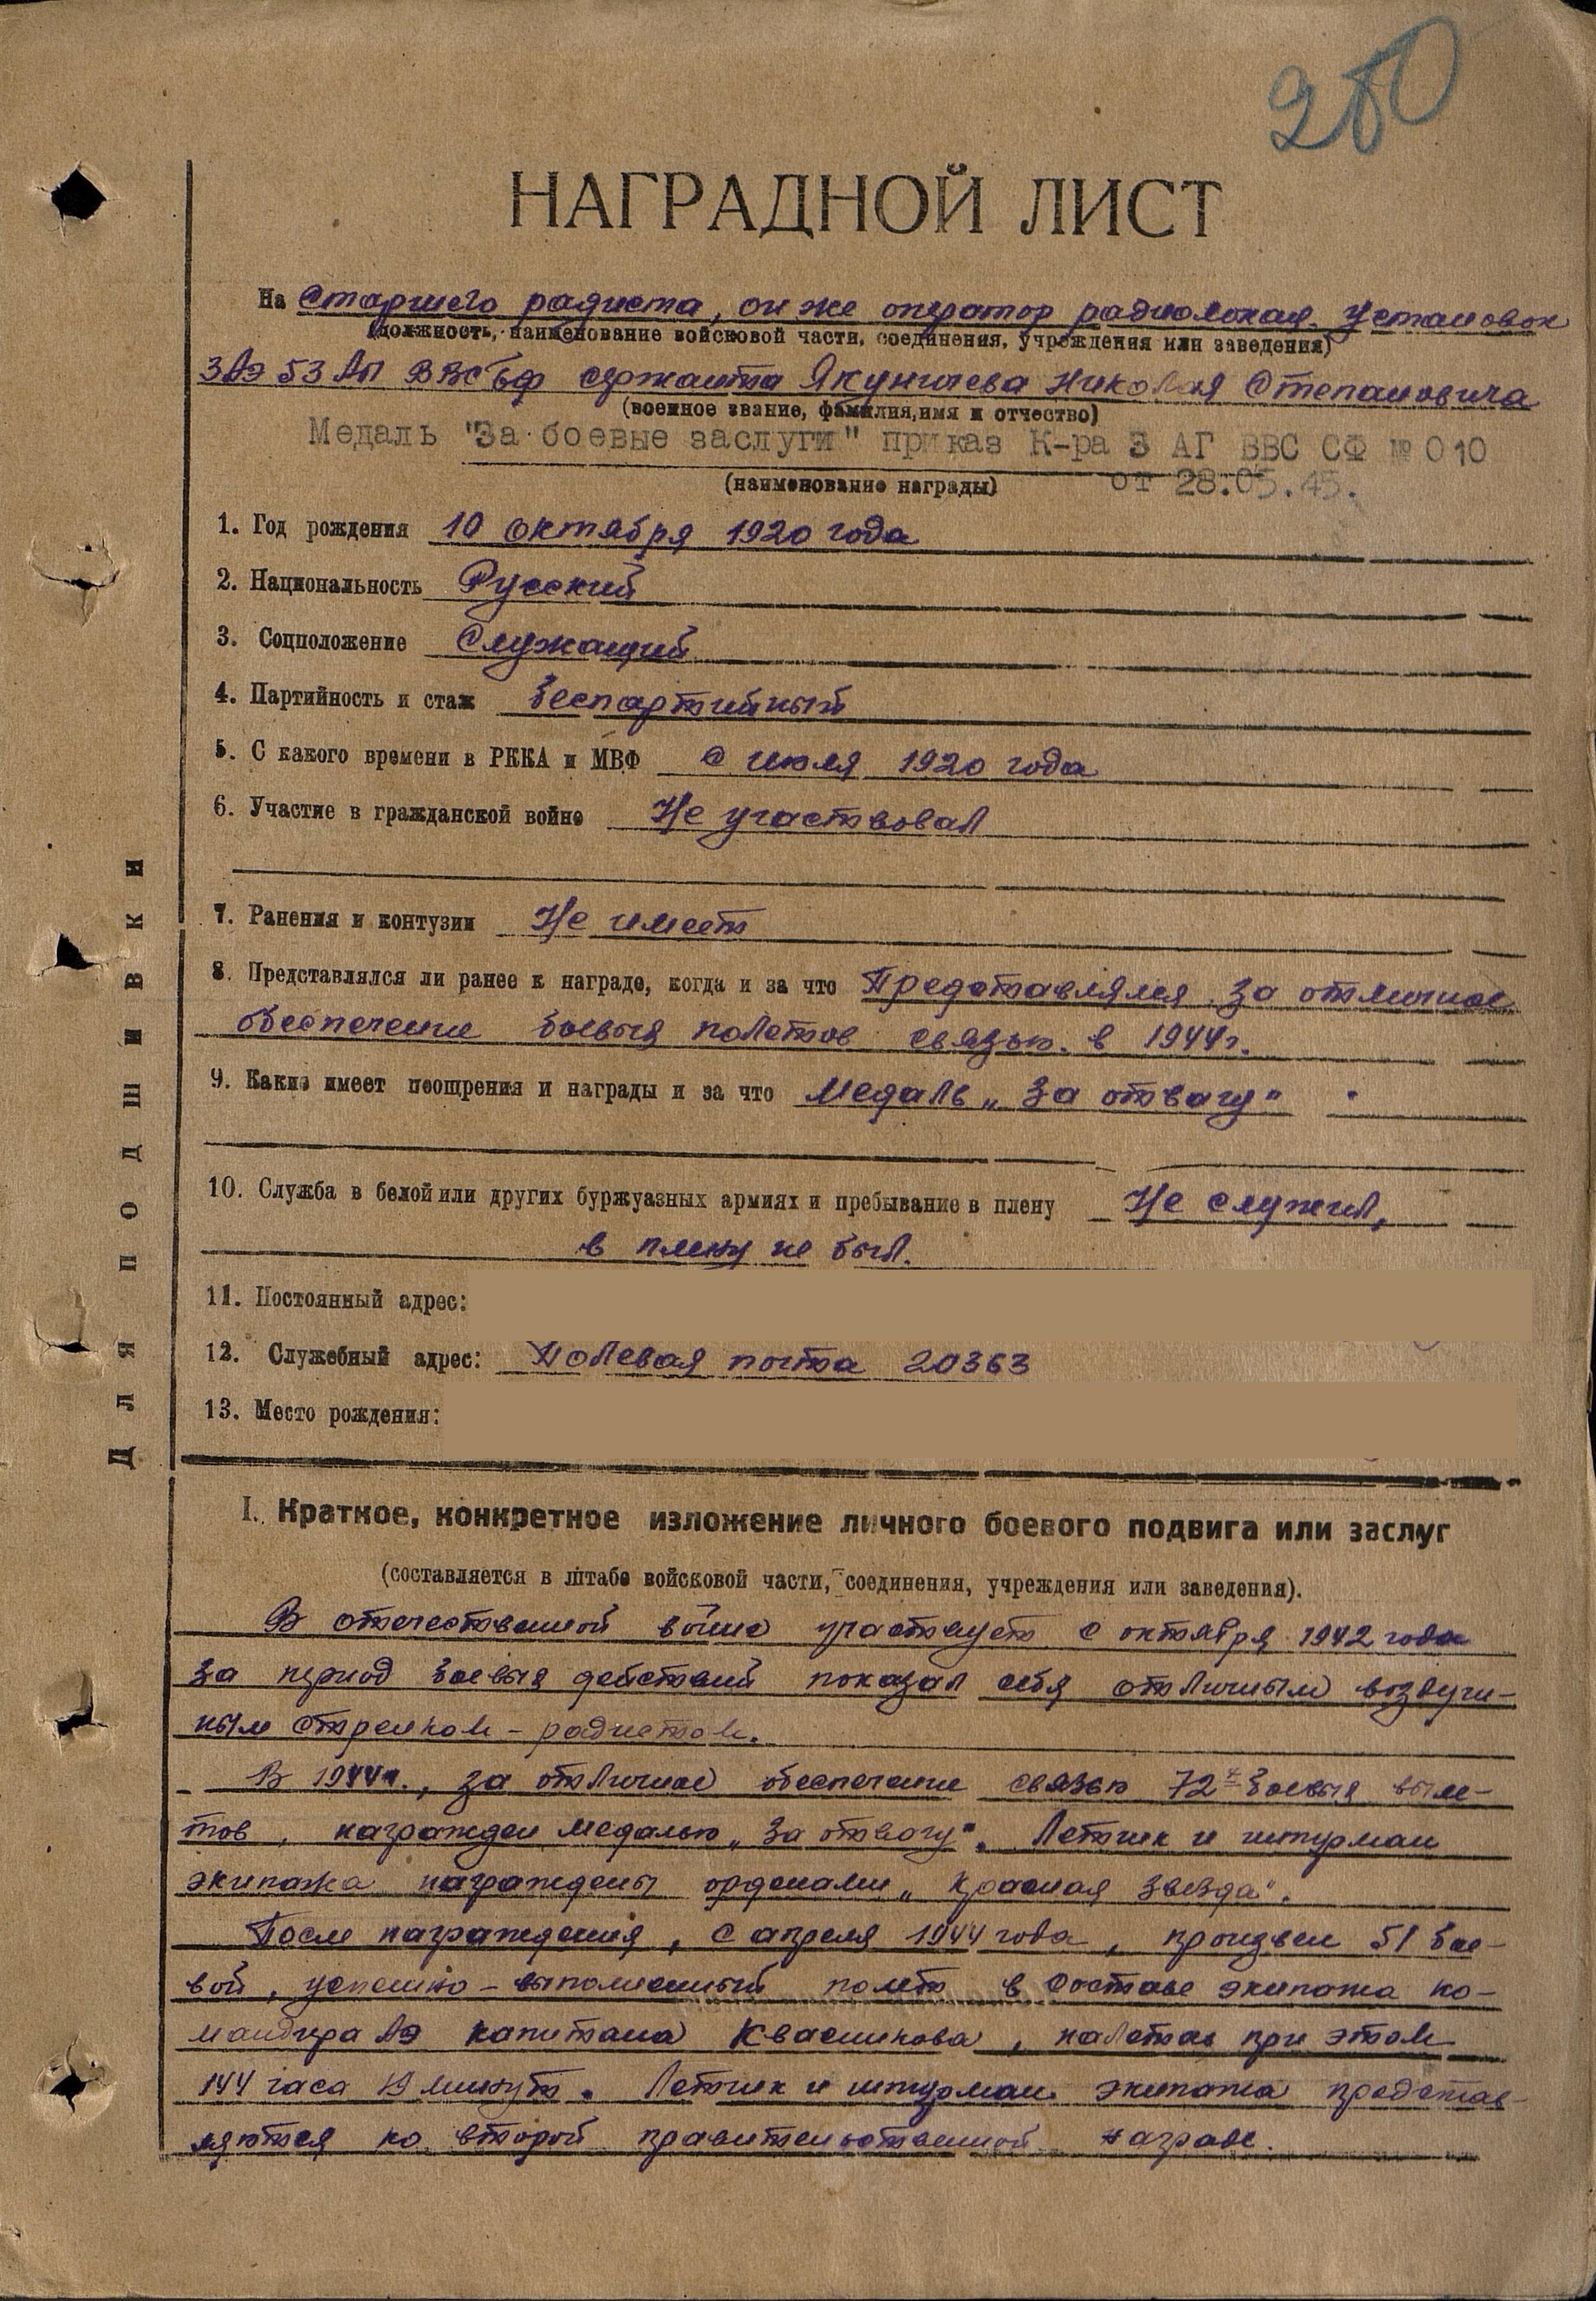 280
НАГРАДНОЙ ЛИСТ
На Старшего радиста, он же оператор радиолокац. установок
(должность, наименование войсковой части, соединения, учреждения или заведения)
3АЭ 53 АП ВВС БФ сержанта Якуничева Николая Степановича
(военное звание, фамилия, имя и отчество)
Медаль "За боевые заслуги" приказ К-ра 3 АГ ВВС СФ №010
(наименование награды) от 28.05.45.
1. Год рождения 10 октября 1920 года
2. Национальность Русский
3. Соцположение Служащий
4. Партийность и стаж Беспартийный
5. С какого времени в РККА и МВФ с июля 1920 года
6. Участие в гражданской войне Не участвовал
7. Ранения и контузии Не имеет
8. Представлялся ли ранее к награде, когда и за что Представлялся за отличное
обеспечение боевых полетов связью в 1944г.
9. Какие имеет поощрения и награды и за что Медаль „За отвагу"
10. Служба в белой или других буржуазных армиях и пребывание в плену Не служил,
в плену не был.
11. Постоянный адрес:
12. Служебный адрес: Полевая почта 20363
13. Место рождения:
Для подшивки
I. Краткое, конкретное изложение личного боевого подвига или заслуг
(составляется в штабе войсковой части, соединения, учреждения или заведения).
В отечественной войне участвует с октября 1942 года
За период боевых действий показал себя отличным воздуш-
ным стрелком-радистом.
В 1944г., за отличное обеспечение связью 72х боевых выле-
тов, награжден медалью „За отвагу". Летчик и штурман
экипажа награждены орденами „Красная звезда".
После награждения, с апреля 1944 года, произвел 51 бое-
вой, успешно-выполненный полет в составе экипажа ко-
мандира АЭ капитана Квасникова, налетав при этом
144 часа 19 минут. Летчик и штурман экипажа представ-
ляются ко второй правительственной награде.